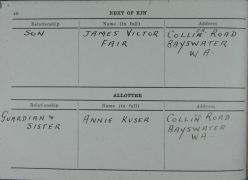 40
NEXT OF KIN
Relationship Name (in full) Address
SON JAMES VICTOR COLLIN ROAD
FAIR BAYSWATER
W.A.
ALLOTTEE
Relationship Name (in full) Address
GUARDIAN & ANNIE KUSER COLLIN ROAD
SISTER BAYSWATER
WA.